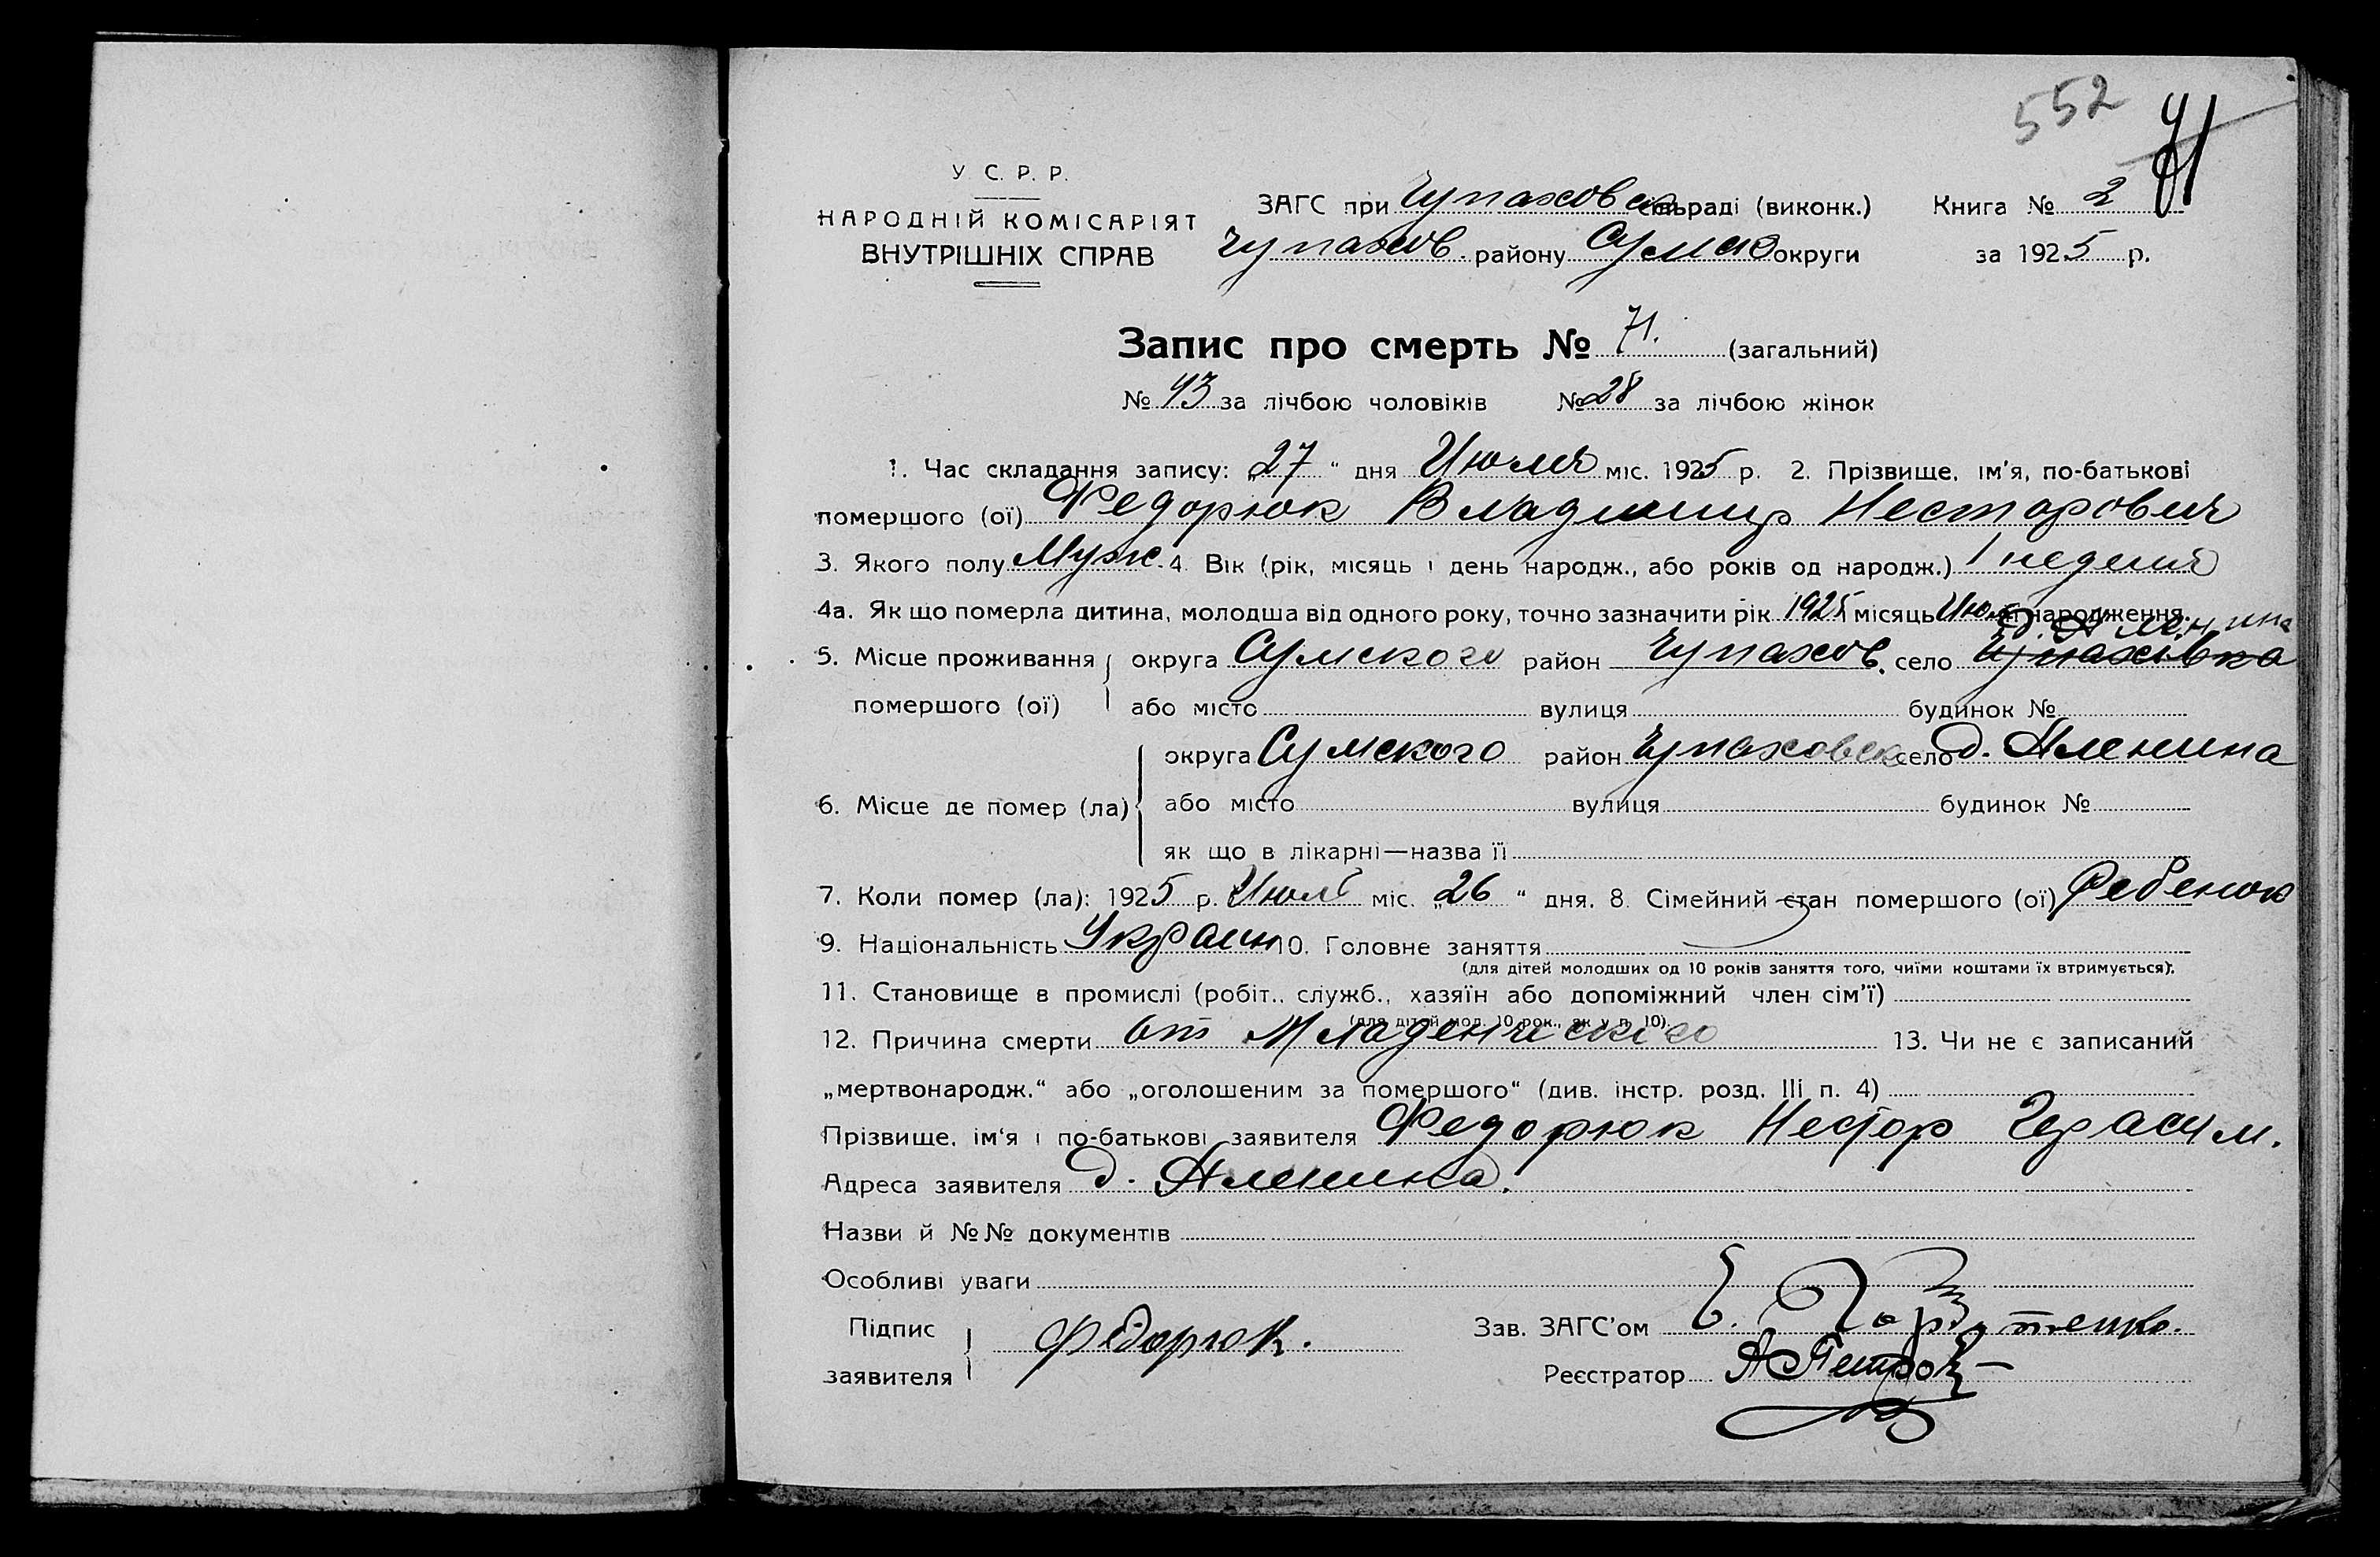 552
71
У С. Р. Р.
НАРОДНІЙ КОМІСАРІЯТ
ВНУТРІШНІХ СПРАВ
ЗАГС при Чупаховск сільраді (виконк.) Книга № 2
Чупахов. району Сумско округи за 1925 р.
Запис про смерть № 71. (загальний)
№ 43 за лічбою чоловіків № 28 за лічбою жінок
1. Час складання запису: „27“ дня Июля міс. 1925 р. 2. Прізвище, ім'я, по-батькові
помершого (ої) Федорюк Владимир Несторович
3. Якого полу Муж. 4. Вік (рік, місяць і день народж., або років од народж.) 1 неделя
4а. Як що померла дитина, молодша від одного року, точно зазначити рік 1925 місяць Июль народження.
д. Аленина
5. Місце проживання округа Сумского район Чупахов. село Чупахівка
помершого (ої) або місто вулиця будинок №
округа Сумского район Чупаховск село д. Аленина
6. Місце де помер (ла) або місто вулиця будинок №
як що в лікарні—назва її
7. Коли помер (ла): 1925 р. Июля міс. „26“ дня. 8. Сімейний стан помершого (ої) Ребенок
9. Національність Украин 10. Головне заняття
(для дітей молодших од 10 років заняття того, чиїми коштами їх втримується).
11. Становище в промислі (робіт., служб., хазяїн або допоміжний член сім'ї)
(для дітей мол. 10 рок., як у п. 10).
12. Причина смерти от Младенческого 13. Чи не є записаний
„мертвонародж.“ або „оголошеним за помершого“ (див. інстр. розд. III п. 4)
Прізвище, ім'я і по-батькові заявителя Федорюк Нестор Герасим.
Адреса заявителя д. Аленина.
Назви й №№ документів
Особливі уваги
Підпис заявителя Федорюк.
Зав. ЗАГС'ом
Реєстратор А Петров